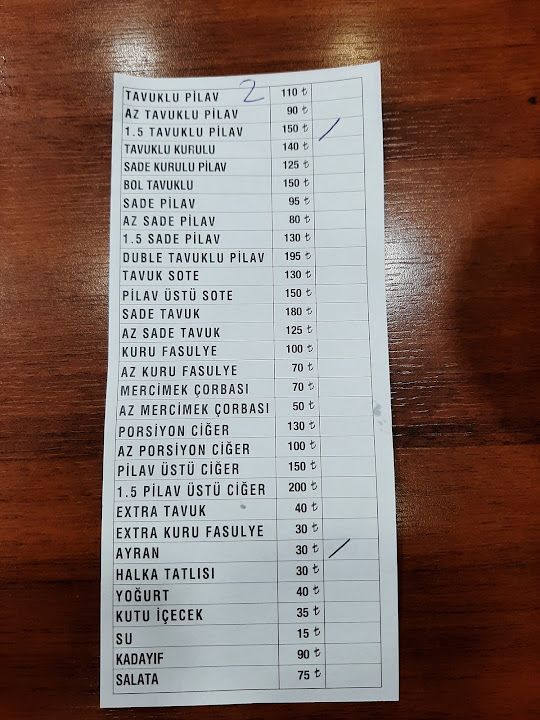 TAVUKLU PİLAV 2 110 ₺
AZ TAVUKLU PİLAV 90 ₺
1.5 TAVUKLU PİLAV 150 ₺ /
TAVUKLU KURULU 140 ₺
SADE KURULU PİLAV 125 ₺
BOL TAVUKLU 150 ₺
SADE PİLAV 95 ₺
AZ SADE PİLAV 80 ₺
1.5 SADE PİLAV 130 ₺
DUBLE TAVUKLU PİLAV 195 ₺
TAVUK SOTE 130 ₺
PİLAV ÜSTÜ SOTE 150 ₺
SADE TAVUK 180 ₺
AZ SADE TAVUK 125 ₺
KURU FASULYE 100 ₺
AZ KURU FASULYE 70 ₺
MERCİMEK ÇORBASI 70 ₺
AZ MERCİMEK ÇORBASI 50 ₺
PORSİYON CİĞER 130 ₺
AZ PORSİYON CİĞER 100 ₺
PİLAV ÜSTÜ CİĞER 150 ₺
1.5 PİLAV ÜSTÜ CİĞER 200 ₺
EXTRA TAVUK 40 ₺
EXTRA KURU FASULYE 30 ₺
AYRAN 30 ₺ /
HALKA TATLISI 30 ₺
YOĞURT 40 ₺
KUTU İÇECEK 35 ₺
SU 15 ₺
KADAYIF 90 ₺
SALATA 75 ₺